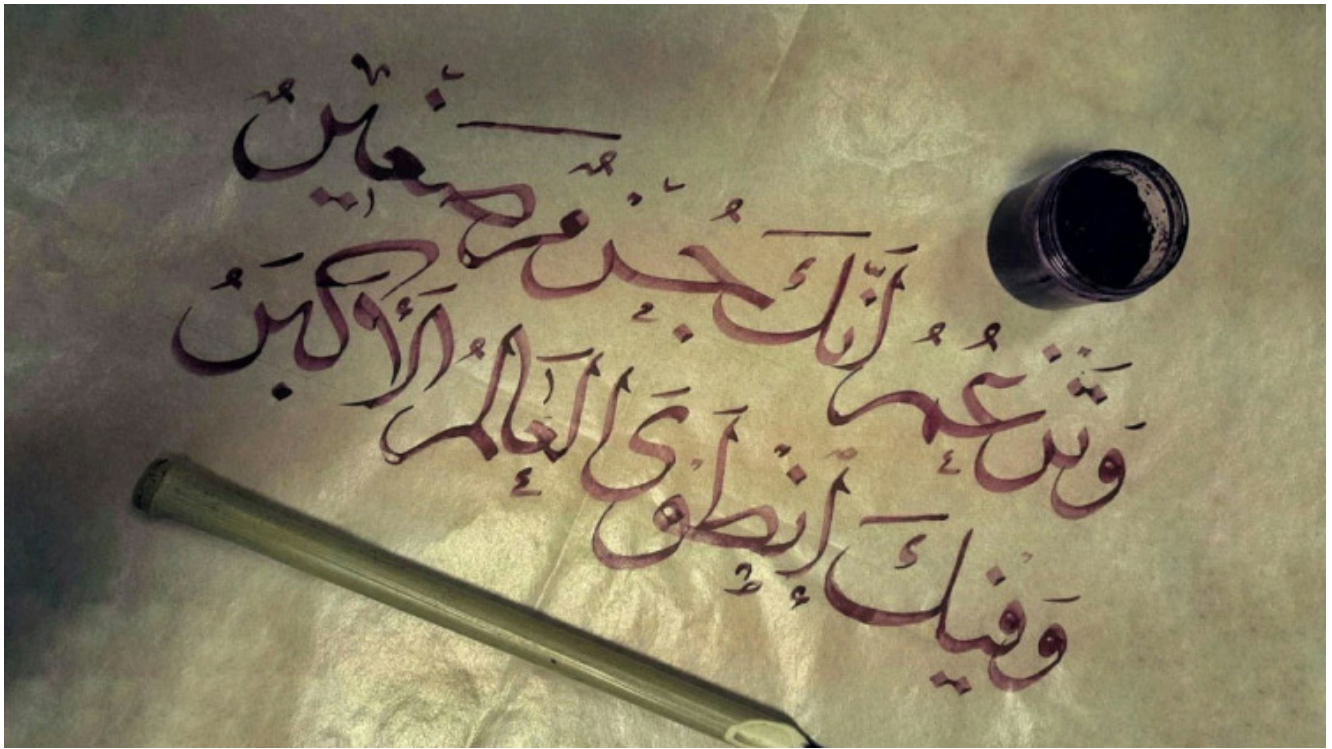 وَتَزْعُمُ أَنَّكَ جُزْمٌ صَغِيْرٌ
وَفِيكَ إنْطَوَى العَالَمُ الأَكْبَرُ